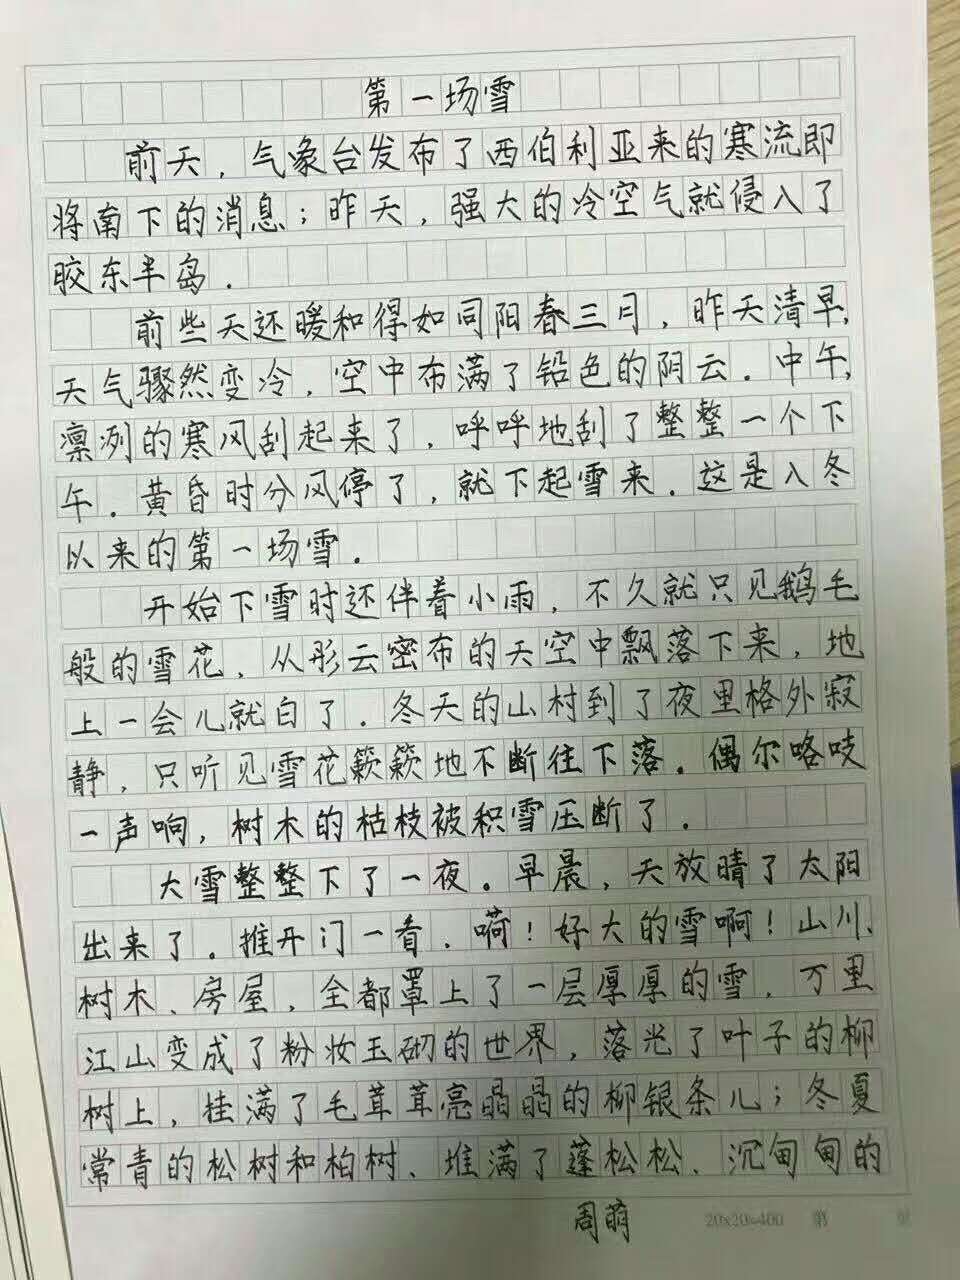 第一场雪
前天，气象台发布了西伯利亚来的寒流即
将南下的消息；昨天，强大的冷空气就侵入了
胶东半岛．
前些天还暖和得如同阳春三月，昨天清早，
天气骤然变冷，空中布满了铅色的阴云．中午，
凛冽的寒风刮起来了，呼呼地刮了整整一个下
午．黄昏时分风停了，就下起雪来．这是入冬
以来的第一场雪．
开始下雪时还伴着小雨，不久就只见鹅毛
般的雪花，从彤云密布的天空中飘落下来，地
上一会儿就白了．冬天的山村到了夜里格外寂
静，只听见雪花簌簌地不断往下落．偶尔咯吱
一声响，树木的枯枝被积雪压断了．
大雪整整下了一夜。早晨，天放晴了太阳
出来了．推开门一看，嗬！好大的雪啊！山川、
树木、房屋，全都罩上了一层厚厚的雪，万里
江山变成了粉妆玉砌的世界，落光了叶子的柳
树上，挂满了毛茸茸亮晶晶的柳银条儿；冬夏
常青的松树和柏树、堆满了蓬松松、沉甸甸的
周萌
20x20=400 第 页